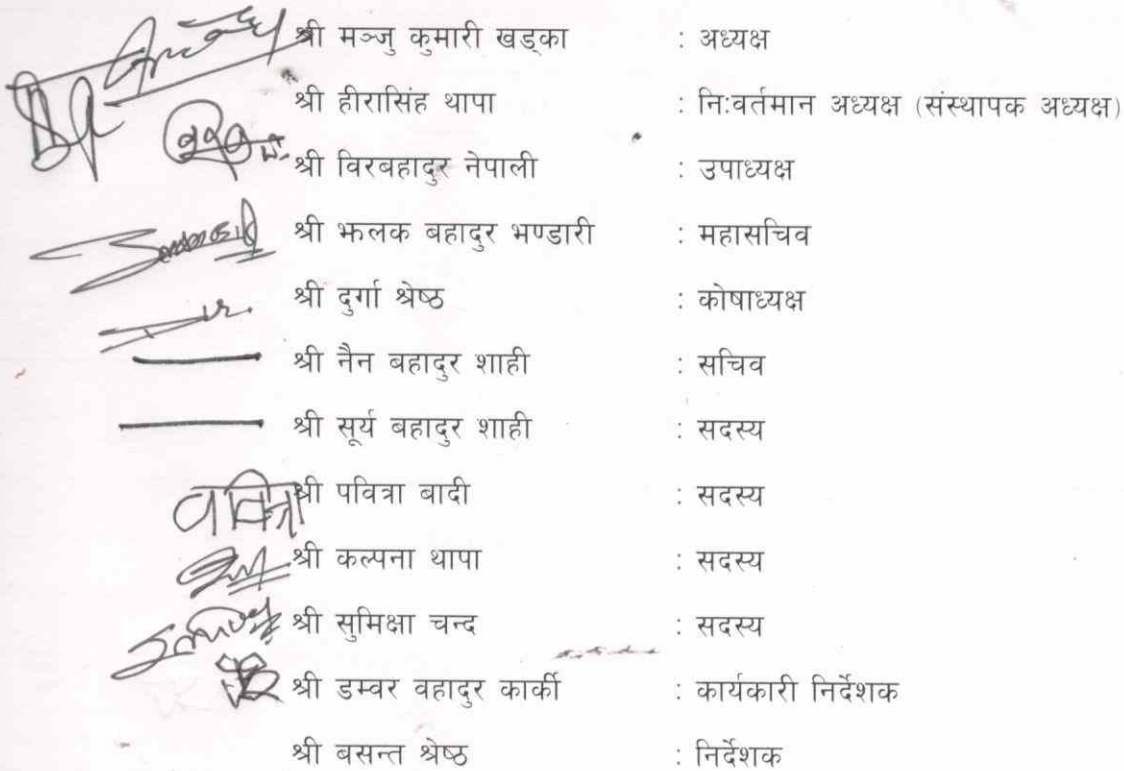 श्री मञ्जु कुमारी खड्का : अध्यक्ष
श्री हीरासिंह थापा : नि:वर्तमान अध्यक्ष (संस्थापक अध्यक्ष)
श्री विरबहादुर नेपाली : उपाध्यक्ष
श्री झलक बहादुर भण्डारी : महासचिव
श्री दुर्गा श्रेष्ठ : कोषाध्यक्ष
श्री नैन बहादुर शाही : सचिव
श्री सूर्य बहादुर शाही : सदस्य
पवित्रा श्री पवित्रा बादी : सदस्य
श्री कल्पना थापा : सदस्य
श्री सुमिक्षा चन्द : सदस्य
श्री डम्वर वहादुर कार्की : कार्यकारी निर्देशक
श्री बसन्त श्रेष्ठ : निर्देशक